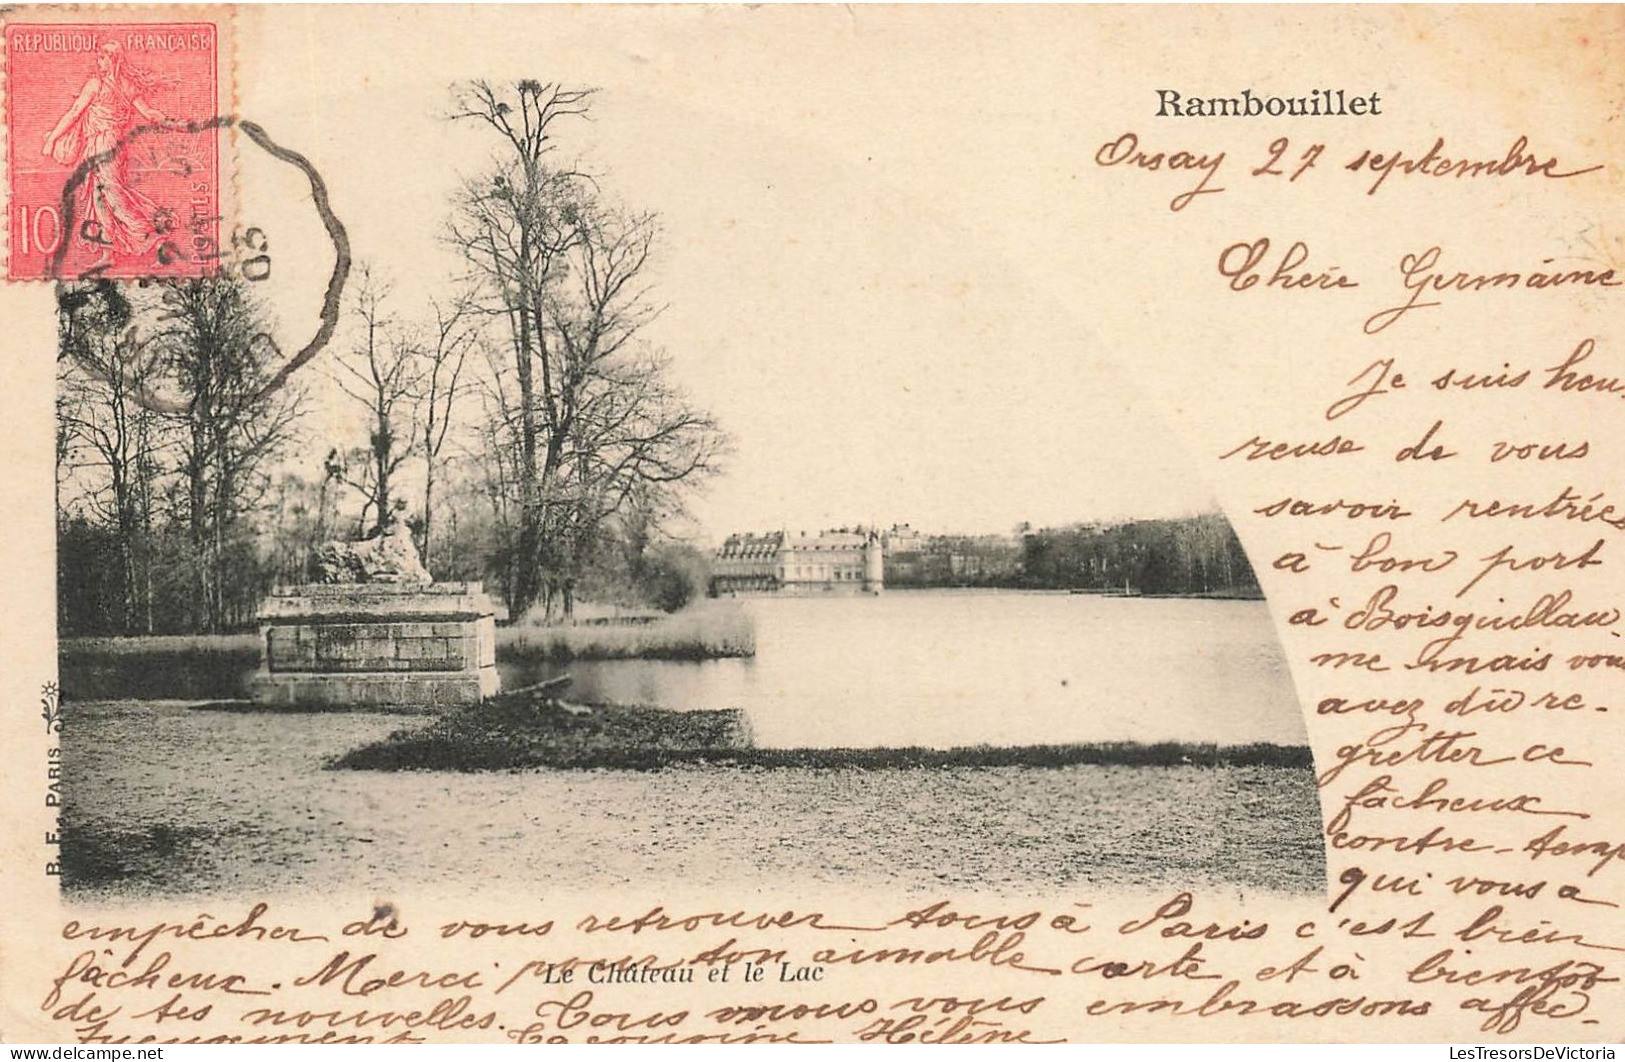 REPUBLIQUE FRANÇAISE
10
POSTES
03
Rambouillet
Orsay 27 septembre
Chère Germaine
Je suis heu-
reuse de vous
savoir rentrées
à bon port
à Boisguillau
me mais vous
avez dû re-
gretter ce
fâcheux
contre-temps
qui vous a
empêcher de vous retrouver tous à Paris c'est bien
fâcheux. Merci pour ton aimable carte et à bientôt
Le Château et le Lac
de tes nouvelles. Tous nous vous embrassons affec-
tueusement Ta cousine Hélène
B. F. PARIS
LesTresorsDeVictoria